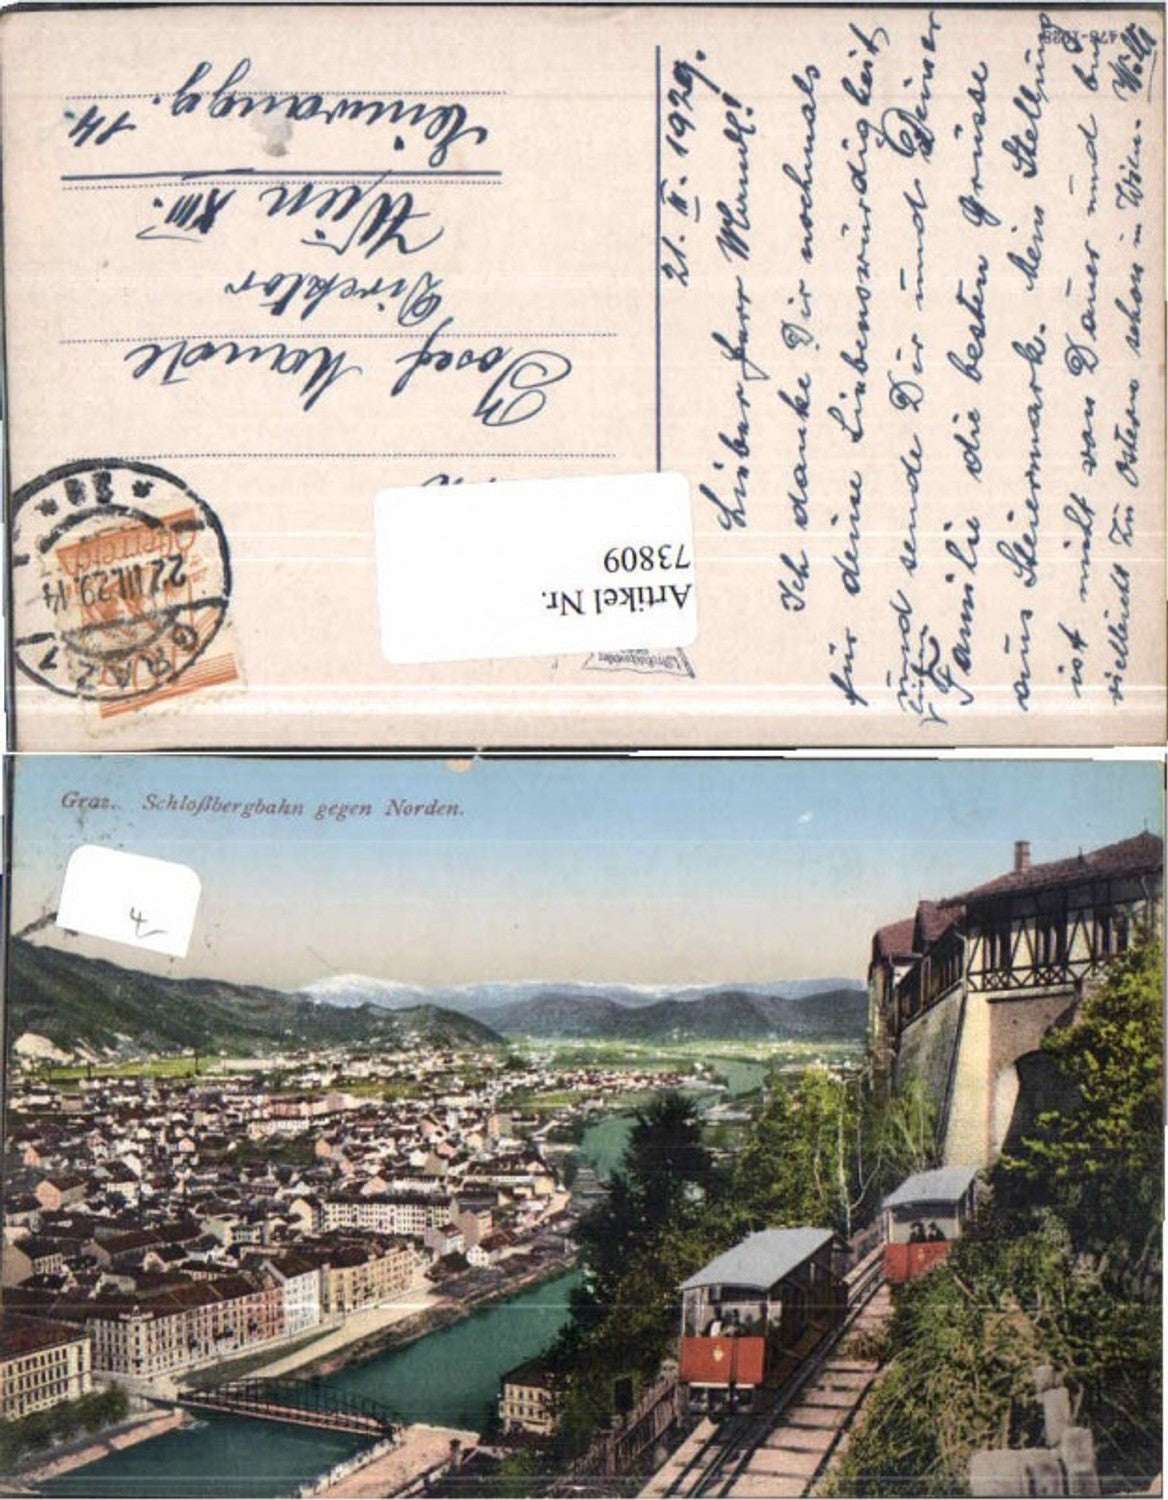 21. III. 1929.
Lieber Herr Mandl!
Ich danke Dir nochmals
für deine Liebenswürdigkeit
und sende Dir und Deiner
Familie die besten Grüsse
aus Steiermark. Mein Stellung
ist nicht von Dauer und bin
vielleicht zu Ostern schon in Wien.
Josef Mandl
Direktor
Wien XIII.
14.
Artikel Nr.
73809
GRAZ 1
22.III.29.14
Österreich
Graz. Schloßbergbahn gegen Norden.
4